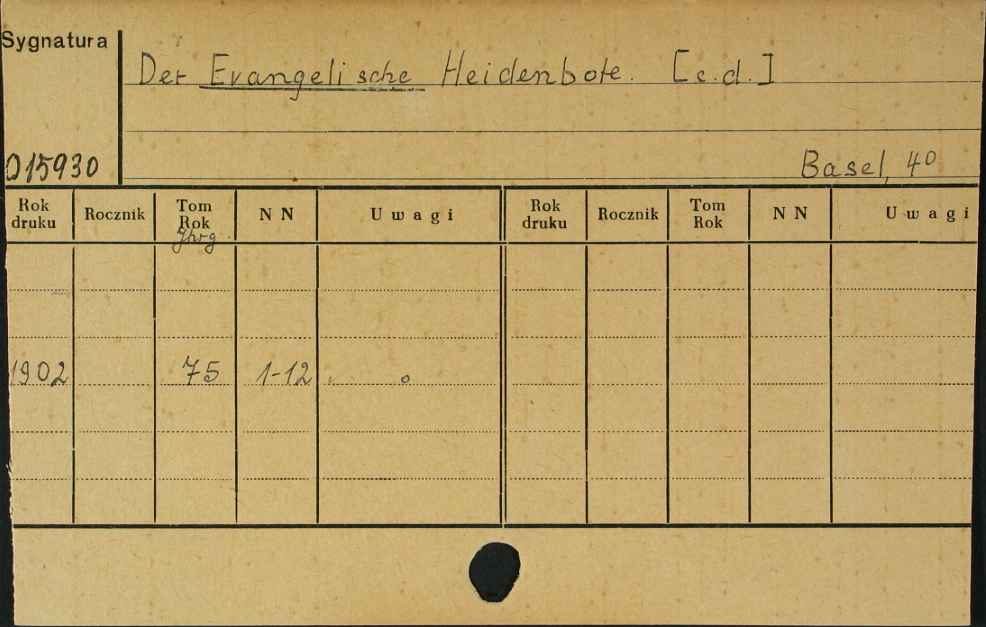 Sygnatura
Der Evangelische Heidenbote. [c.d.]
015930
Basel, 4⁰
Rok druku Rocznik Tom Rok N N Uwagi Rok druku Rocznik Tom Rok N N Uwagi
Jhrg.
1902 75 1-12 o